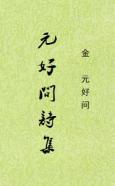 金 元好问
元好問詩集